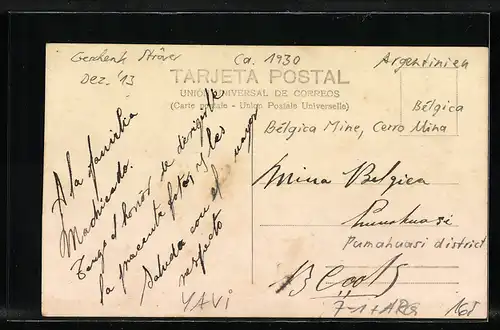 Geschenk Ströver
Dez. '13
Ca. 1930
Argentinien
TARJETA POSTAL
UNIÓN UNIVERSAL DE CORREOS
(Carte postale - Union Postale Universelle)
Bélgica
Bélgica Mine, Cerro Mina
A la familia
Machicado.
Tengo el honor de dirigirle
la presente foto y les
Saluda con el mayor
respecto
Mina Belgica
Pumahuasi
Pumahuasi district
YAVi
7-1+ARG